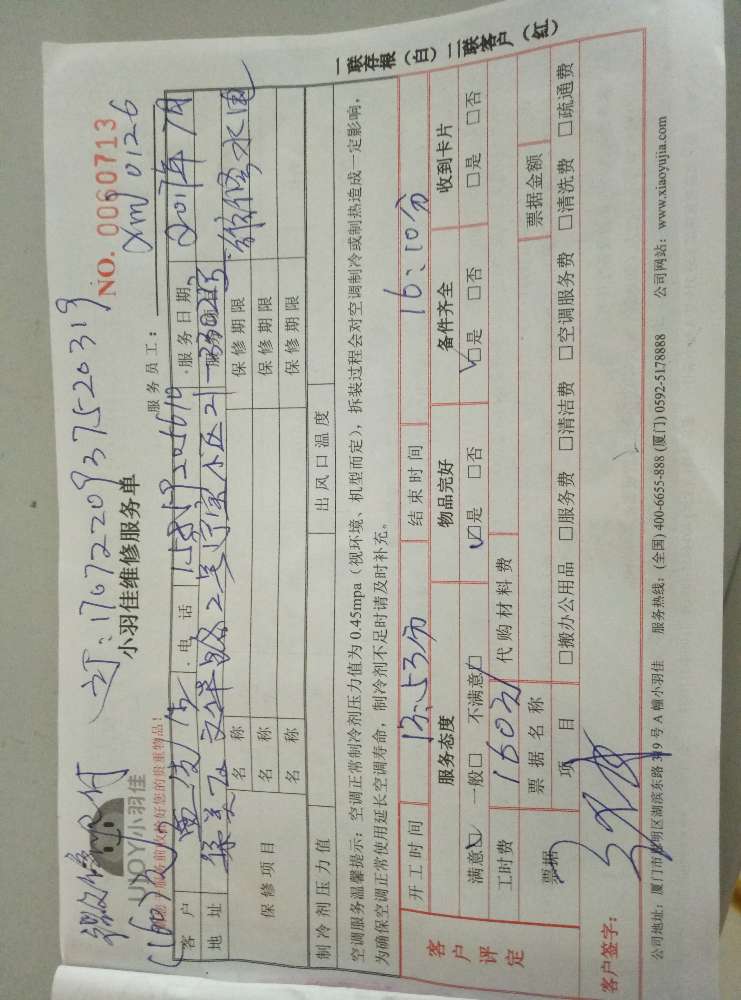 订:1707220937520319
NO. 0060713
xmj0126
小羽佳维修服务单
UJOY/小羽佳
服务员工:
客户
电话 15859205610
服务日期
2017年7月
地址
保修项目
名称
保修期限
维修水电
名称
保修期限
名称
保修期限
制冷剂压力值
出风口温度
空调服务温馨提示:空调正常制冷剂压力值为 0.45mpa(视环境、机型而定),拆装过程会对空调制冷或制热造成一定影响,
为确保空调正常使用延长空调寿命,制冷剂不足时请及时补充。
一联存根(白)二联客户(红)
客户评定
开工时间 15:53分 结束时间 16:10分
服务态度 物品完好 备件齐全 收到卡片
满意☑ 一般□ 不满意□ ☑是 □否 ☑是 □否 □是 □否
工时费 160元 代购材料费
票据 票据名称 票据金额
项目 □搬办公用品 □服务费 □清洁费 □空调服务费 □清洗费 □疏通费
客户签字:
公司地址:厦门市思明区湖滨东路 319 号 A 幢小羽佳 服务热线:(全国) 400-6655-888 (厦门) 0592-5178888 公司网站:www.xiaoyujia.com